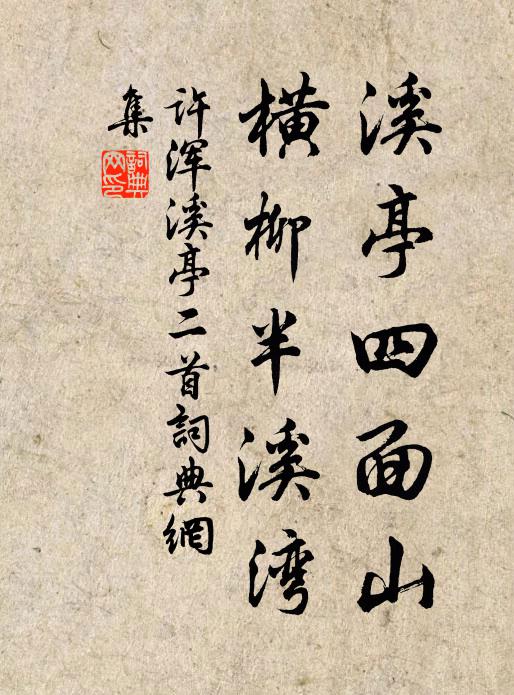 溪亭四面山
横柳半溪湾
许浑溪亭二首詞典網
集
詞典
网印